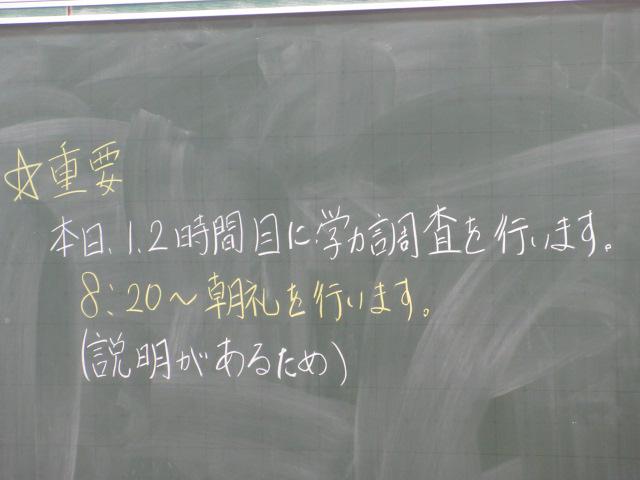 ☆重要
本日、1.2時間目に学力調査を行います。
8:20〜朝礼を行います。
(説明があるため)